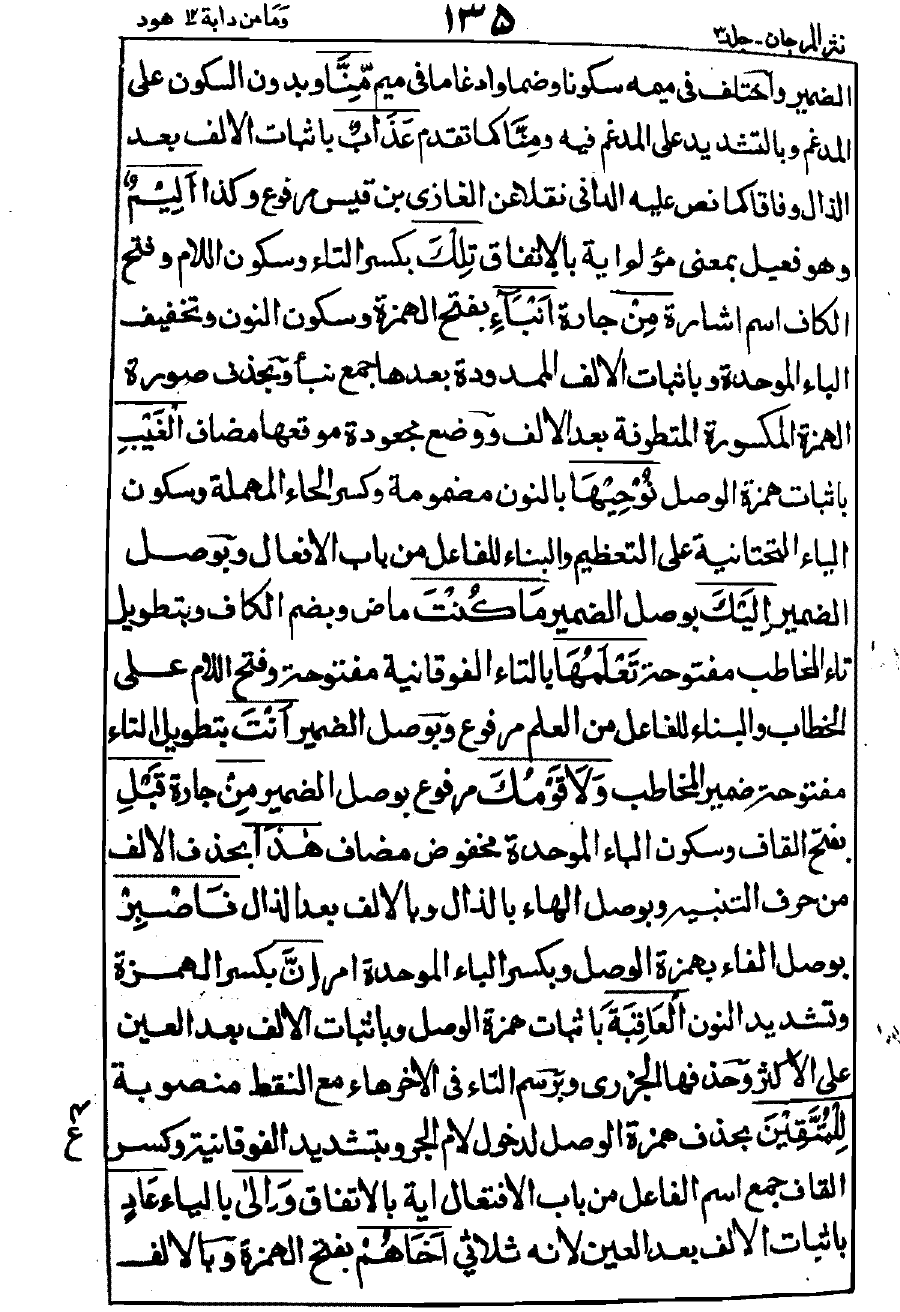 نثر المرجان - جلد ۳
۱۳۵
وما من دابة ۱۲ هود
الضمير واختلف فى ميمه سكونا وضما وادغاما فى ميم مِّنَّا وبدون السكون على
المدغم وبالتشديد على المدغم فيه ومِنَّا كما تقدم عَذَابٌ باثبات الالف بعد
الذال وفاقا كما نص عليه الدانى نقلا عن الغازى بن قيس مرفوع وكذا اَلِيْمٌ
وهو فعيل بمعنى مؤلم اية بالاتفاق تِلْكَ بكسر التاء وسكون اللام وفتح
الكاف اسم اشارة مِنْ جارة اَنْبَآءِ بفتح الهمزة وسكون النون وتخفيف
الباء الموحدة وباثبات الالف الممدودة بعدها جمع نبأ وبحذف صورة
الهمزة المكسورة المتطرفة بعد الالف ووضع مجعودة موقعها مضاف الْغَيْبِ
باثبات همزة الوصل نُوْحِيْهَا بالنون مضمومة وكسر الحاء المهملة وسكون
الياء التحتانية على التعظيم والبناء للفاعل من باب الافعال وبوصل
الضمير اِلَيْكَ بوصل الضمير مَا كُنْتَ ماض وبضم الكاف وبتطويل
تاء المخاطب مفتوحة تَعْلَمُهَا بالتاء الفوقانية مفتوحة وفتح اللام على
الخطاب والبناء للفاعل من العلم مرفوع وبوصل الضمير اَنْتَ بتطويل التاء
مفتوحة ضمير المخاطب وَلَا قَوْمُكَ مرفوع بوصل الضمير مِنْ جارة قَبْلِ
بفتح القاف وسكون الباء الموحدة مخفوض مضاف هٰذَا بحذف الالف
من حرف التنبيه وبوصل الهاء بالذال وبالالف بعد الذال فَاصْبِرْ
بوصل الفاء بهمزة الوصل وبكسر الباء الموحدة امر اِنَّ بكسر الهمزة
وتشديد النون الْعَاقِبَةَ باثبات همزة الوصل وباثبات الالف بعد العين
على الاكثر وحذفها الجزرى وبرسم التاء فى الاخر هاء مع النقط منصوبة
لِلْمُتَّقِيْنَ بحذف همزة الوصل لدخول لام الجر وبتشديد الفوقانية وكسر
ع
القاف جمع اسم الفاعل من باب الافتعال اية بالاتفاق وَاِلٰى بالياء عَادٍ
باثبات الالف بعد العين لانه ثلاثي اَخَاهُمْ بفتح الهمزة وبالالف